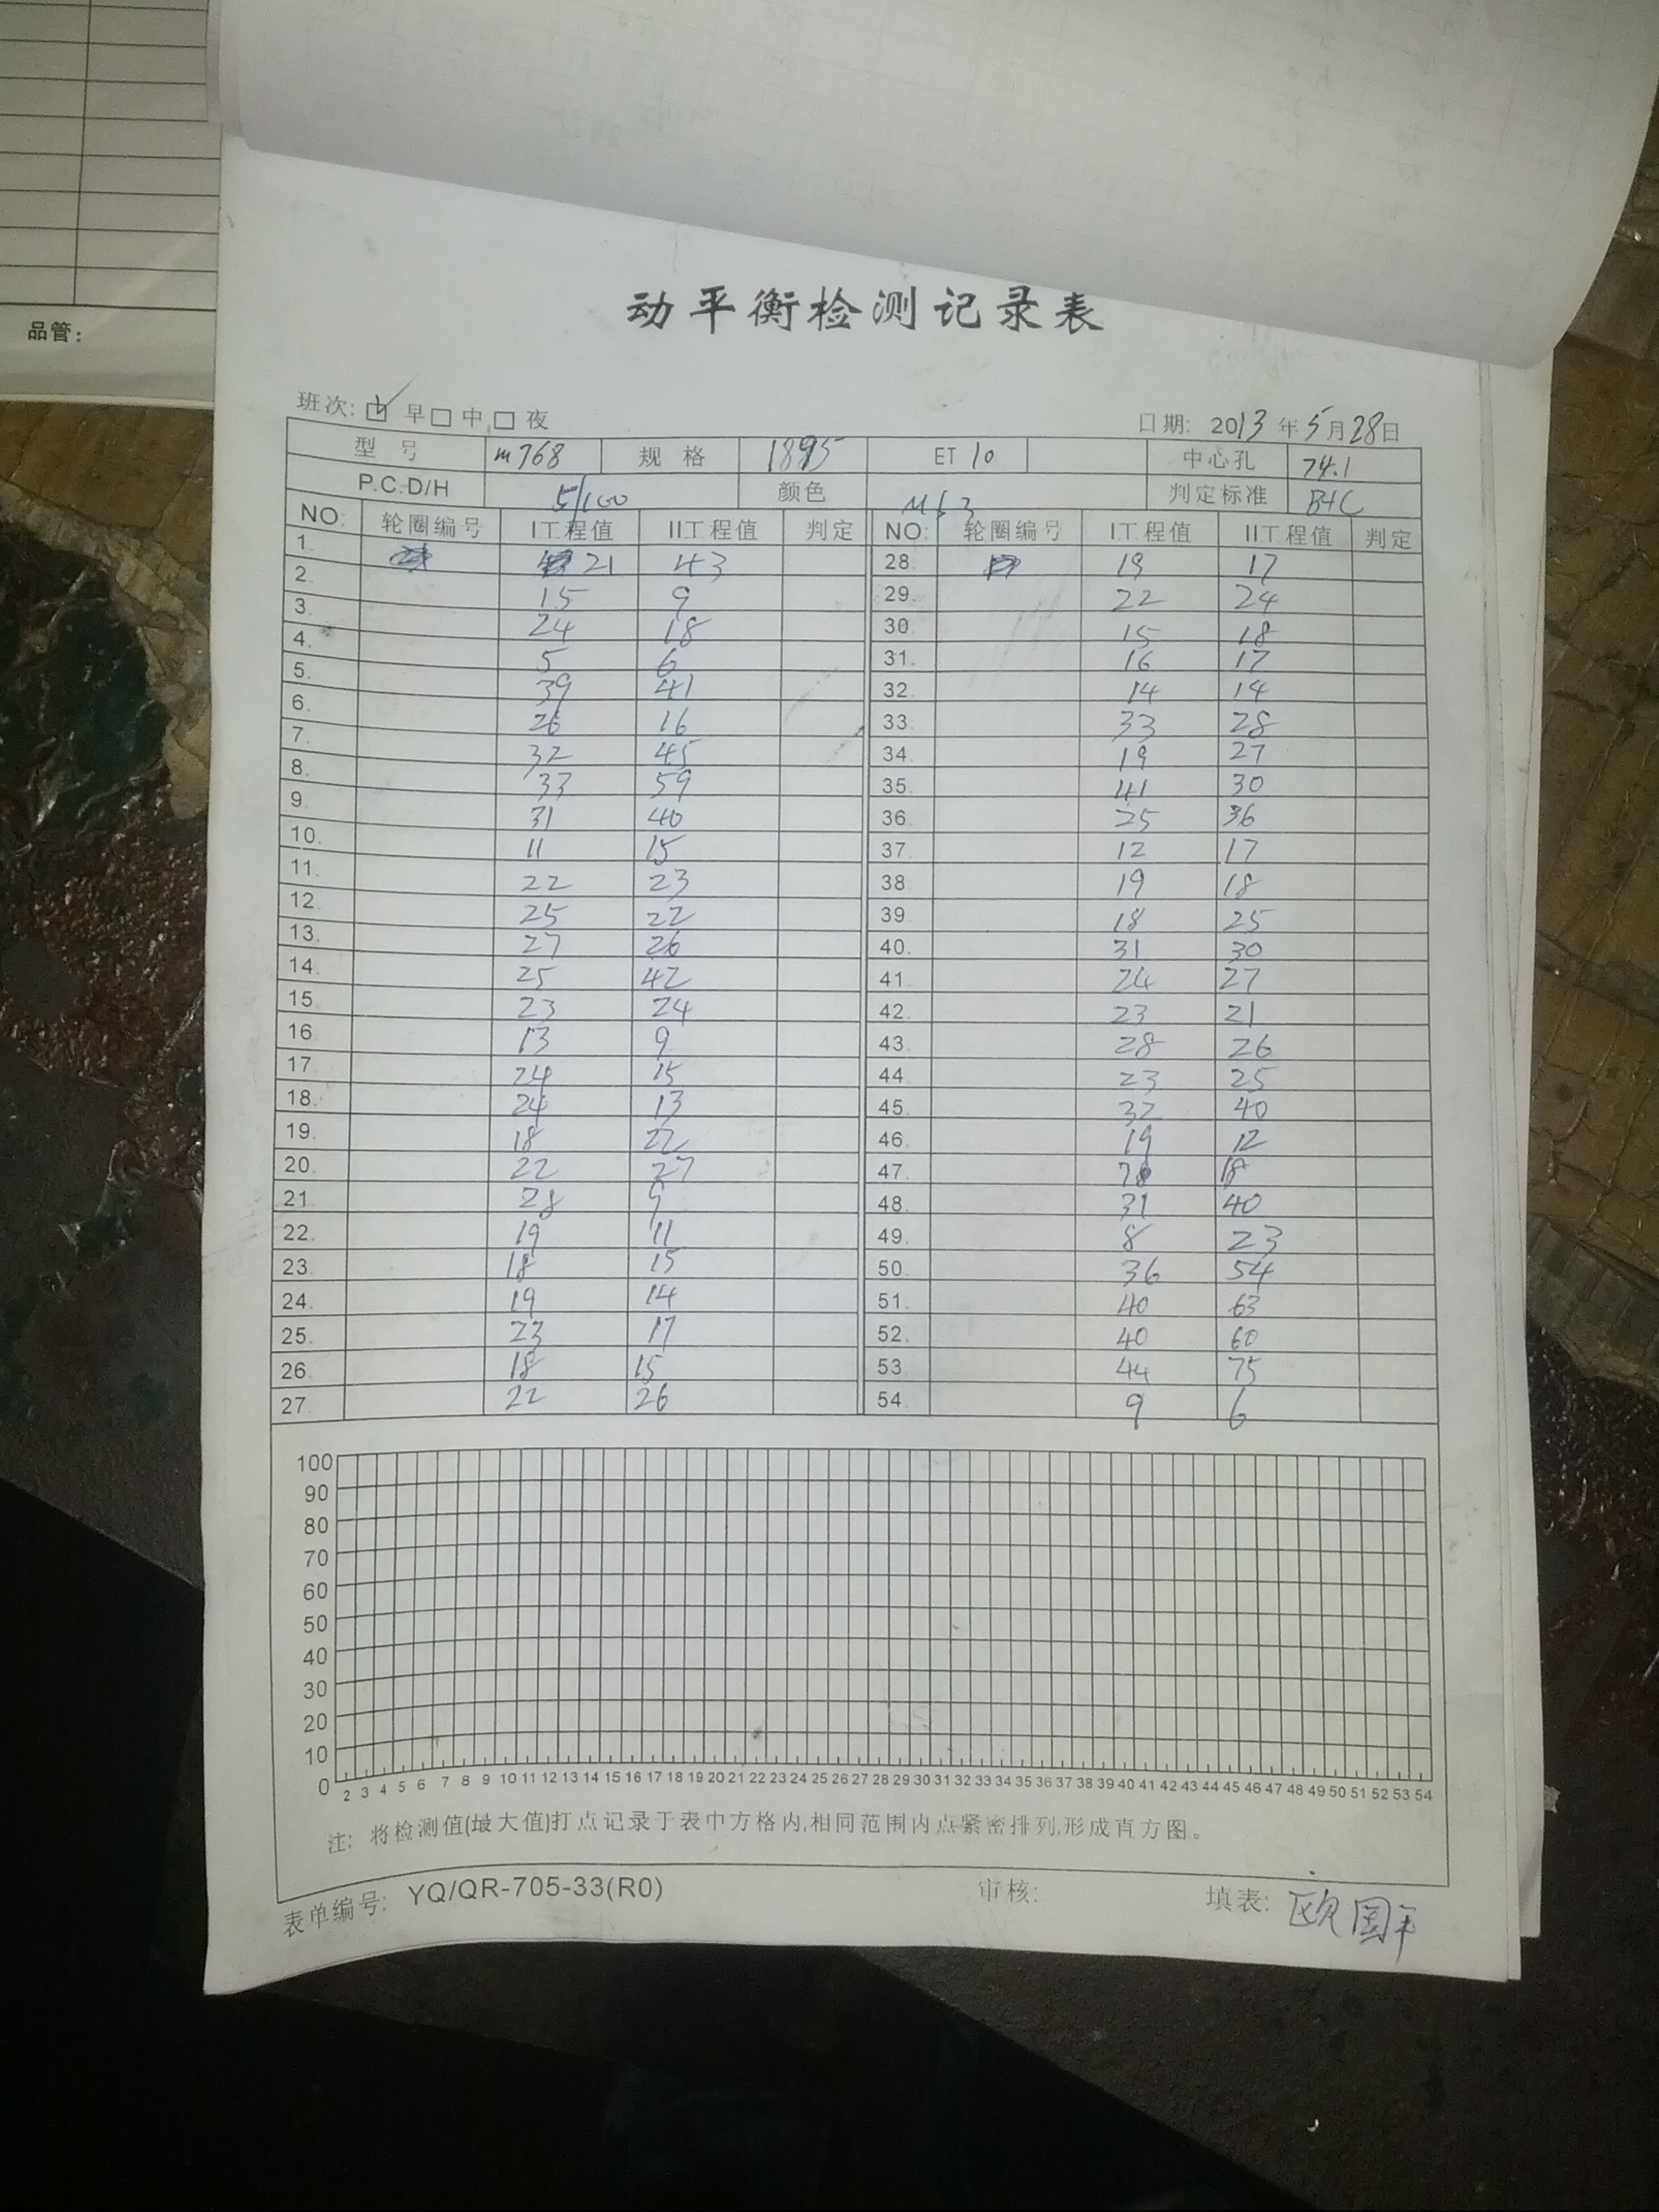 品管:
动平衡检测记录表
班次: ☑ 早 □ 中 □ 夜 日期: 2013 年 5 月 28 日
型号 m768 规格 1895 ET 10 中心孔 74.1
P.C.D/H 5/100 颜色 判定标准 B+C
NO: 轮圈编号 I工程值 II工程值 判定 NO: 轮圈编号 I工程值 II工程值 判定
1. 21 43 28. 19 17
2. 15 9 29. 22 24
3. 24 18 30. 15 18
4. 5 6 31. 16 17
5. 39 41 32. 14 14
6. 26 16 33. 33 28
7. 32 45 34. 19 27
8. 33 59 35. 41 30
9. 31 40 36. 25 36
10. 11 15 37. 12 17
11. 22 23 38. 19 18
12. 25 22 39. 18 25
13. 27 26 40. 31 30
14. 25 42 41. 24 27
15. 23 24 42. 23 21
16. 13 9 43. 28 26
17. 24 15 44. 23 25
18. 24 13 45. 32 40
19. 18 22 46. 19 12
20. 22 27 47. 18
21. 28 9 48. 31 40
22. 19 11 49. 8 23
23. 18 15 50. 36 54
24. 19 14 51. 40 63
25. 23 17 52. 40 60
26. 18 15 53. 44 75
27. 22 26 54. 9 6
100
90
80
70
60
50
40
30
20
10
0
2 3 4 5 6 7 8 9 10 11 12 13 14 15 16 17 18 19 20 21 22 23 24 25 26 27 28 29 30 31 32 33 34 35 36 37 38 39 40 41 42 43 44 45 46 47 48 49 50 51 52 53 54
注: 将检测值(最大值)打点记录于表中方格内,相同范围内点紧密排列,形成直方图。
表单编号: YQ/QR-705-33(R0) 审核: 填表: 欧国平